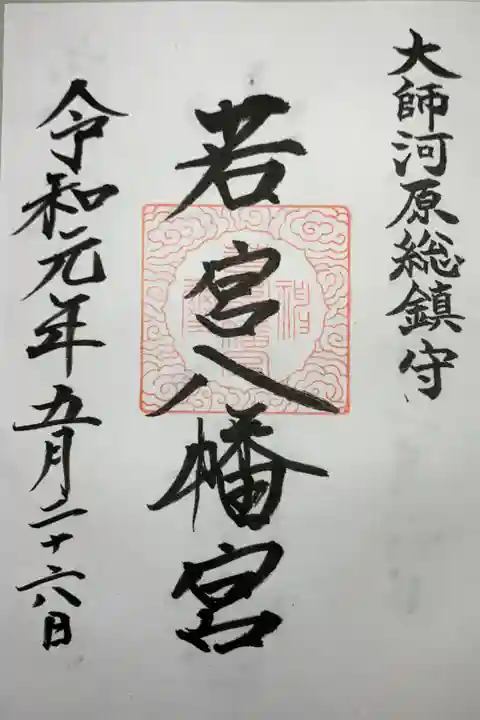 大師河原総鎮守
若宮八幡宮
令和元年五月二十六日